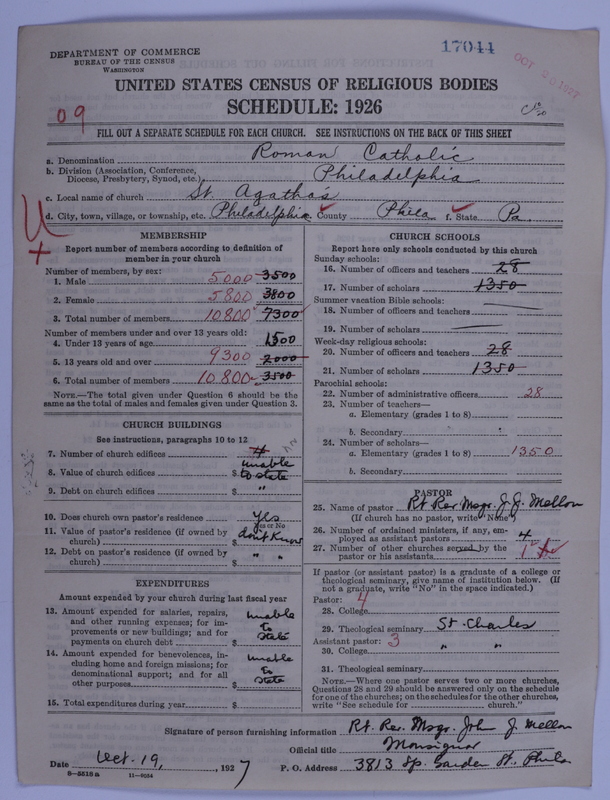 DEPARTMENT OF COMMERCE
BUREAU OF THE CENSUS
WASHINGTON
17044
OCT 20 1927
UNITED STATES CENSUS OF RELIGIOUS BODIES
SCHEDULE: 1926
09
FILL OUT A SEPARATE SCHEDULE FOR EACH CHURCH. SEE INSTRUCTIONS ON THE BACK OF THIS SHEET
a. Denomination Roman Catholic
b. Division (Association, Conference, Diocese, Presbytery, Synod, etc.) Philadelphia
c. Local name of church St. Agatha's
d. City, town, village, or township, etc. Philadelphia e. County Phila f. State Pa.
MEMBERSHIP
Report number of members according to definition of
member in your church
Number of members, by sex:
1. Male 5000 3500
2. Female 5800 3800
3. Total number of members 10,800 7300
Number of members under and over 13 years old:
4. Under 13 years of age 1500
5. 13 years old and over 9300 2000
6. Total number of members 10,800 3500
NOTE.—The total given under Question 6 should be the
same as the total of males and females given under Question 3.
CHURCH BUILDINGS
See instructions, paragraphs 10 to 12
7. Number of church edifices 4
8. Value of church edifices $ unable to state
9. Debt on church edifices $ "
10. Does church own pastor's residence Yes
Yes or No
11. Value of pastor's residence (if owned by
church) $ don't Know
12. Debt on pastor's residence (if owned by
church) $ " "
EXPENDITURES
Amount expended by your church during last fiscal year
13. Amount expended for salaries, repairs,
and other running expenses; for im-
provements or new buildings; and for
payments on church debt $ unable to state
14. Amount expended for benevolences, in-
cluding home and foreign missions; for
denominational support; and for all
other purposes $ unable to state
15. Total expenditures during year $
CHURCH SCHOOLS
Report here only schools conducted by this church
Sunday schools:
16. Number of officers and teachers 28
17. Number of scholars 1350
Summer vacation Bible schools:
18. Number of officers and teachers
19. Number of scholars
Week-day religious schools:
20. Number of officers and teachers 28
21. Number of scholars 1350
Parochial schools:
22. Number of administrative officers 28
23. Number of teachers—
a. Elementary (grades 1 to 8)
b. Secondary
24. Number of scholars—
a. Elementary (grades 1 to 8) 1350
b. Secondary
PASTOR
25. Name of pastor Rt Rev. Msgr. J. J. Mellon
(If church has no pastor, write "None")
26. Number of ordained ministers, if any, em-
ployed as assistant pastors 4
27. Number of other churches served by the
pastor or his assistants 1
If pastor (or assistant pastor) is a graduate of a college or
theological seminary, give name of institution below. (If
not a graduate, write "No" in the space indicated.)
Pastor: 4
28. College
29. Theological seminary St. Charles
Assistant pastor: 3
30. College " "
31. Theological seminary
NOTE.—Where one pastor serves two or more churches,
Questions 28 and 29 should be answered only on the schedule
for one of the churches; on the schedules for the other churches,
write "See schedule for church."
Signature of person furnishing information Rt. Rev. Msgr. John J. Mellon
Official title Monsignor
Date Oct. 19, 1927 P. O. Address 3813 Sp. Garden St. Phila
8—5518a 11—9034